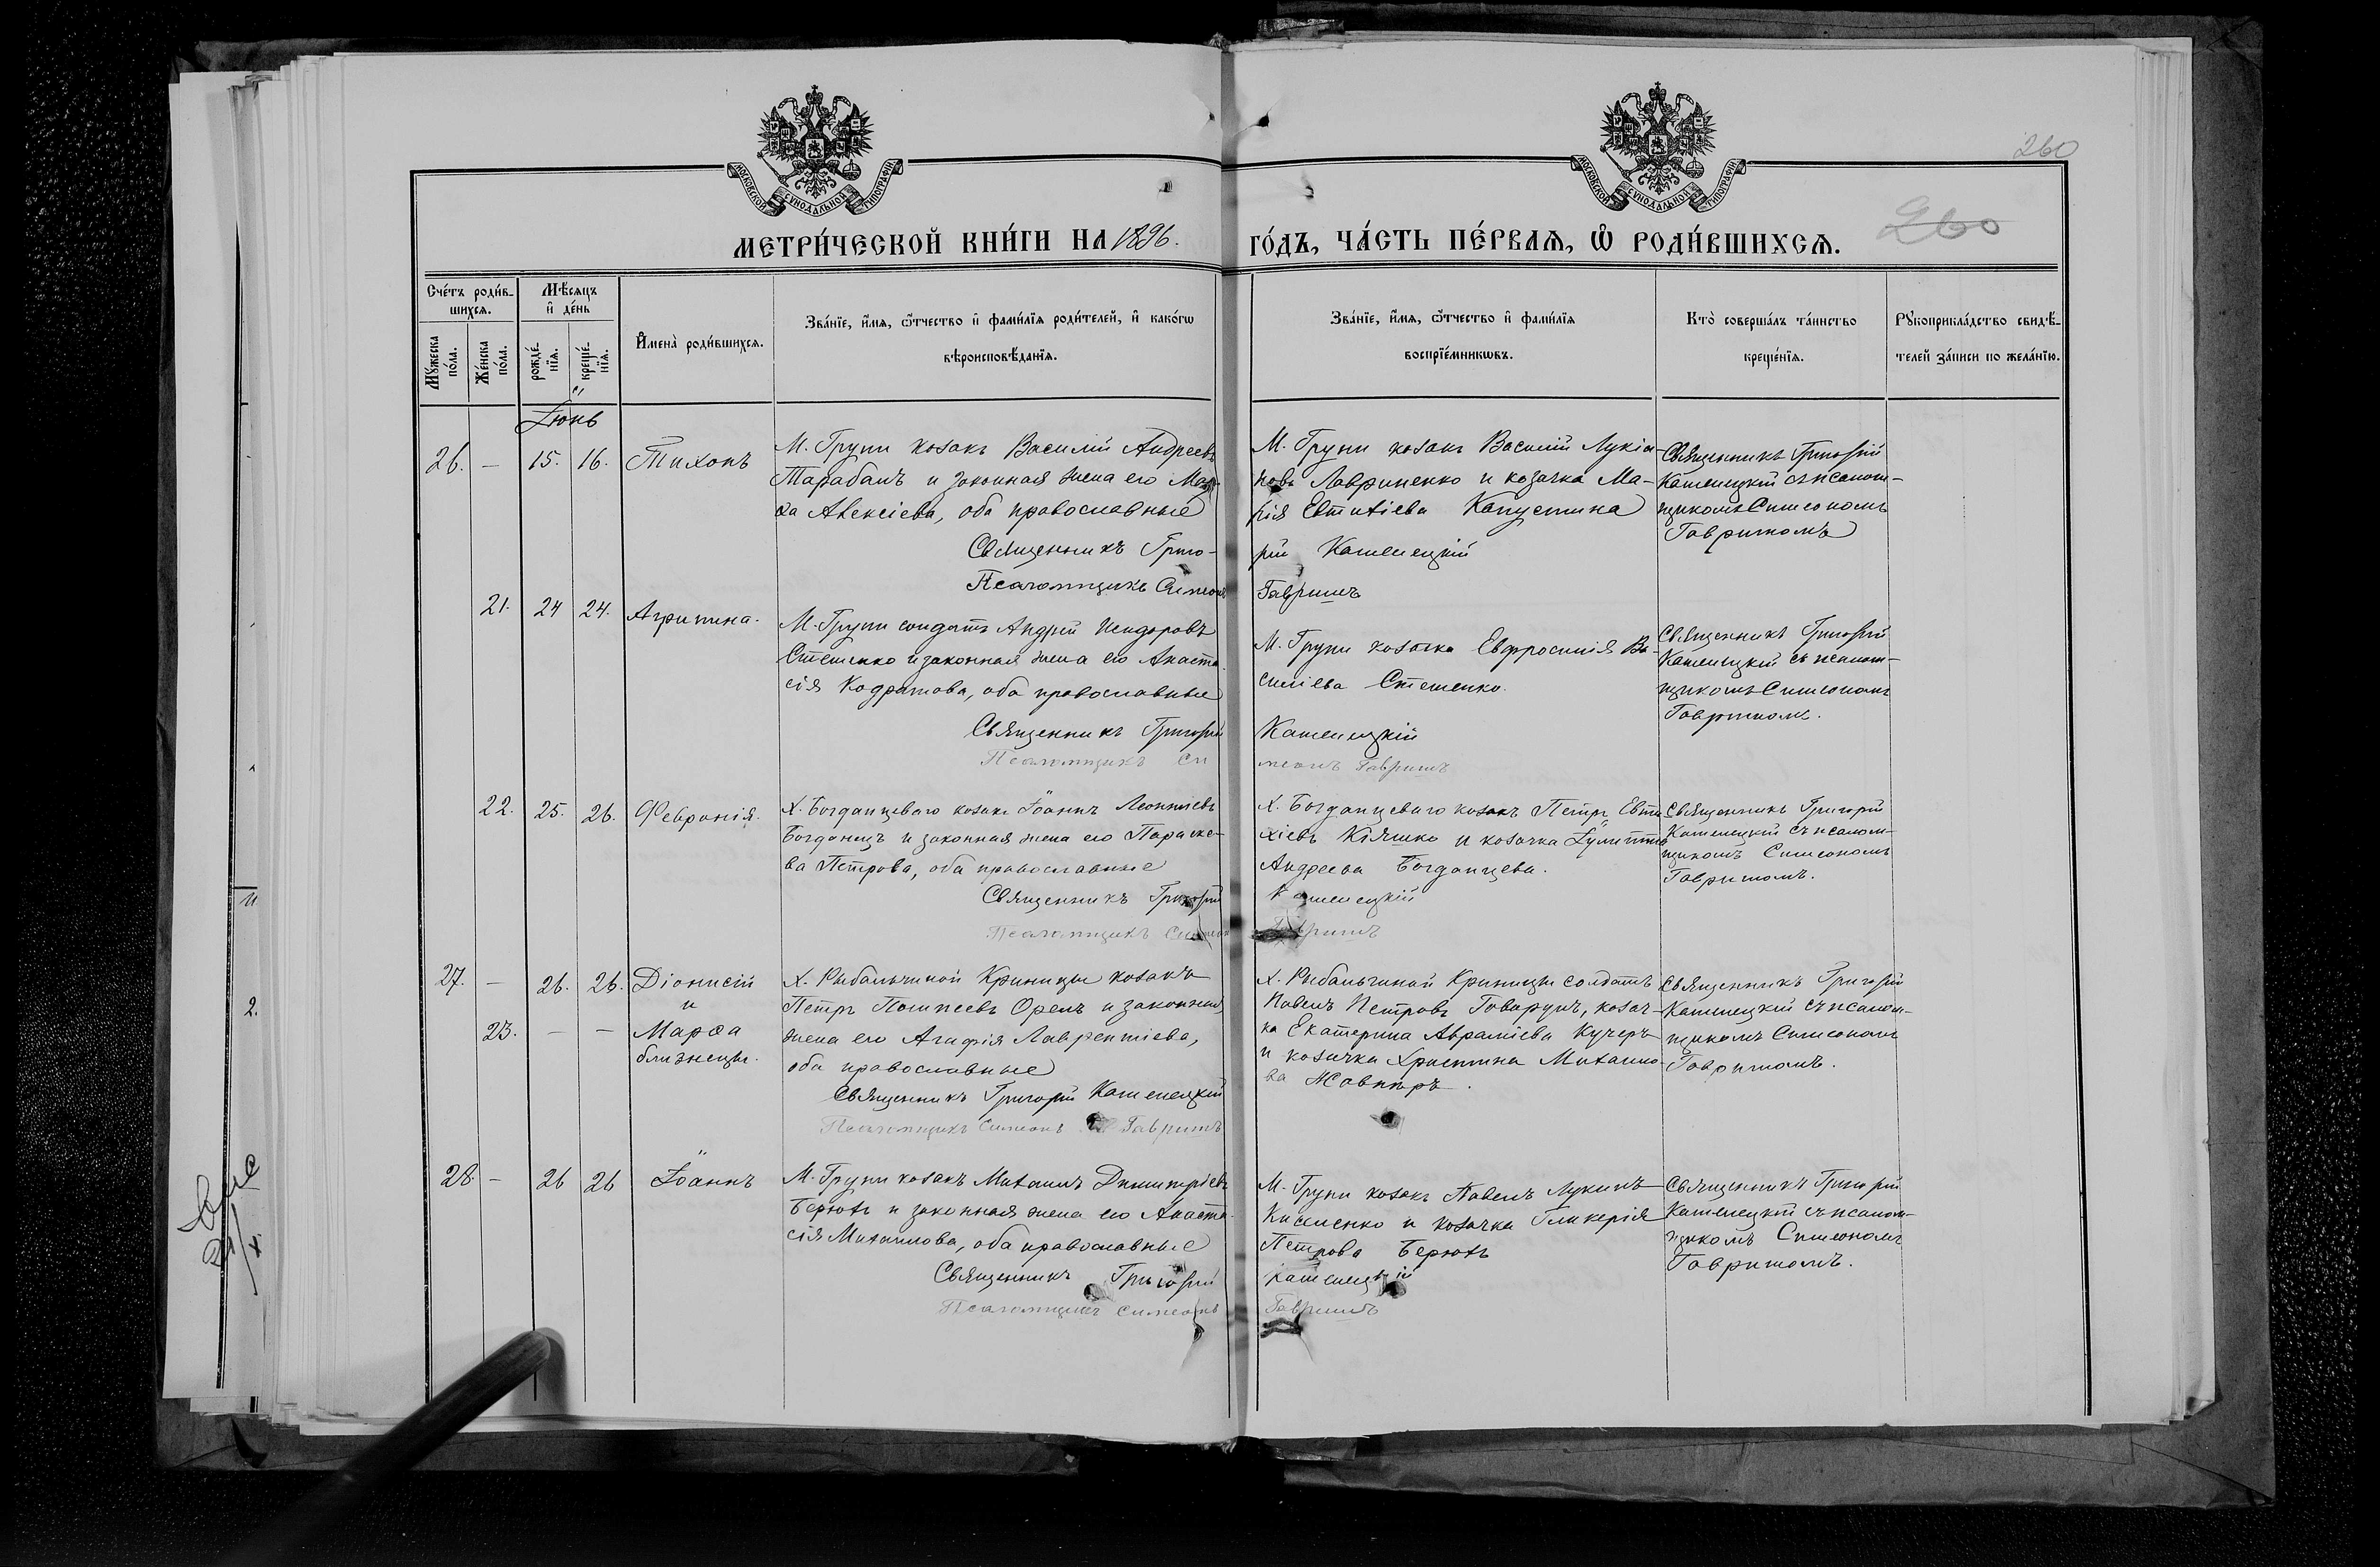 260
260
МОСКОВСКОЙ СѴНОДАЛЬНОЙ ТИПОГРАФІИ
МОСКОВСКОЙ СѴНОДАЛЬНОЙ ТИПОГРАФІИ
МЕТРИ́ЧЕСКОЙ КНИ́ГИ НА 1896. ГО́ДЪ, ЧА́СТЬ ПЕ́РВАѦ, Ѡ РОДИ́ВШИХСѦ.
Сче́тъ роди́в-
шихсѧ.
Мѣ́сѧцъ
и҆ де́нь
Мꙋ́жеска
по́ла.
Же́нска
по́ла.
рожде́-
нїѧ.
креще́-
нїѧ.
И҆мена̀ роди́вшихсѧ.
Зва́нїе, и҆́мѧ, ѻ҆́тчество и҆ фами́лїѧ роди́телей, и҆ како́гѡ
вѣроисповѣ́данїѧ.
Зва́нїе, и҆́мѧ, ѻ҆́тчество и҆ фами́лїѧ
воспрїе́мникѡвъ.
Кто̀ соверша́лъ та́инство
креще́нїѧ.
Рꙋкоприкла́дство свидѣ́-
телей за́писи по жела́нїю.
Іюнь
26. — 15. 16. Тихонъ
М. Груни козакъ Василій Андреевъ
Тарабанъ и законная жена его
Алексіева, оба православные
Священникъ Григо-
Псаломщикъ Симеонъ
М. Груни козакъ Василій Лукіа-
новъ Лавриненко и козачка Ма-
рія Евтихіева Капустина
рій Каменецкій
Гавришъ
Священникъ Григорій
Каменецкій съ псалом-
щикомъ Симеономъ
Гавришомъ
21. 24 24. Агрипина.
М. Груни солдатъ Андрей Исидоровъ
Стешенко и законная жена его Анаста-
сія Кодратова, оба православные
Священникъ Григорій
Псаломщикъ Си
М. Груни козачка Евфросинія Ва-
силіева Стешенко.
Каменецкій
меонъ Гавришъ
Священникъ Григорій
Каменецкій съ псалом-
щикомъ Симеономъ
Гавришомъ.
22. 25. 26. Февронія.
Х. Богданцеваго козакъ Іоаннъ Леонтіевъ
Богданецъ и законная жена его Параске-
ва Петрова, оба православные
Священникъ Григорій
Псаломщикъ Симеонъ
Х. Богданцеваго козакъ Петръ Евти-
хіевъ Кіяшко и козачка
Андреева Богданцева.
Каменецкій
Гавришъ
Священникъ Григорій
Каменецкій съ псалом-
щикомъ Симеономъ
Гавришомъ.
27. — 26. 26. Діонисій
и
23. — — Марѳа
близнецы.
Х. Рыбальчиной Криницы козакъ
Петръ Орелъ и законная
жена его Агафія Лаврентіева,
оба православные
Священникъ Григорій Каменецкій
Псаломщикъ Симеонъ Гавришъ
Х. Рыбальчиной Криницы солдатъ
Павелъ Петровъ Говорунъ, козач-
ка Екатерина Авраміева Кучеръ
и козачка Христина Михаило-
ва
Священникъ Григорій
Каменецкій съ псалом-
щикомъ Симеономъ
Гавришомъ.
28. — 26 26 Іоаннъ
М. Груни козакъ Михаилъ Димитріевъ
Берютъ и законная жена его Анаста-
сія Михаилова, оба православные
Священникъ Григорій
Псаломщикъ Симеонъ
М. Груни козакъ Павелъ Лукинъ
Кисленко и козачка Гликерія
Петрова Берютъ
Каменецкій
Гавришъ
Священникъ Григорій
Каменецкій съ псалом-
щикомъ Симеономъ
Гавришомъ.